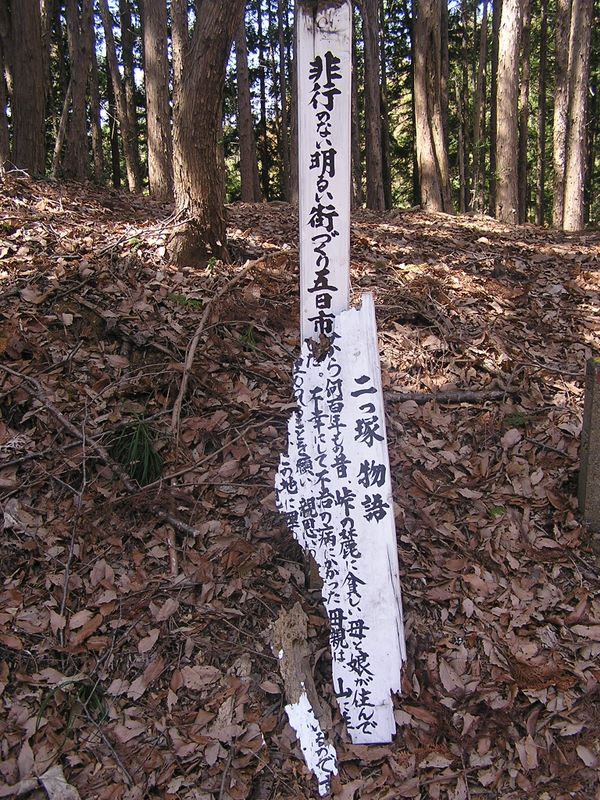 非行のない明るい街づくり五日市
二つ塚物語
今から何百年もの昔 峠の麓に貧しい母と娘が住んで
いた。不幸にして不治の病にかかった母親は、山に
埋めてくることを願い親思い
この地に埋